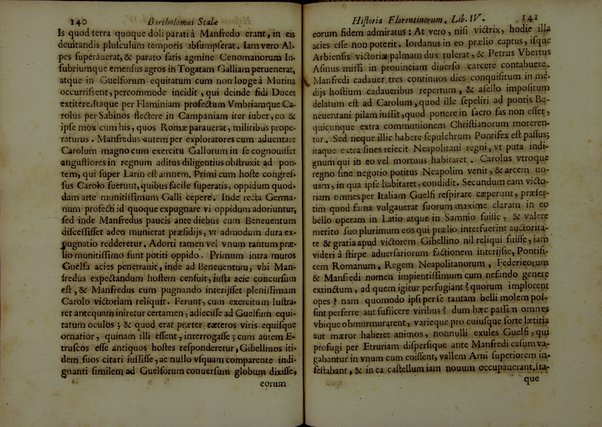 140 Bartholomei Scalæ
Is quod terra quoque doli parati à Manfredo erant, in eis
deuitandis plusculum temporis absumpserat. Iam vero Al-
pes superauerat, & parato satis agmine Cenomanorum In-
subriumque emensus agros in Togatam Galliam peruenerat,
atque in Guelforum equitatum cum non longe à Mutina
occurrissent, percommode incidit, qui deinde fidi Duces
extitere. Itaque per Flaminiam profectum Vmbriamque Ca-
rolus per Sabinos flectere in Campaniam iter iubet, co &
ipse mox cum his, quos Romæ parauerat, militibus prope-
raturus. Manfredus autem per exploratores cum aduentare
Carolum magno cum exercitu Gallorum in se cognouisset
angustiores in regnum aditus diligentius obstruxit ad pon-
tem, qui super Larin est amnem. Primi cum hoste congres-
sus Carolo fuerunt, quibus facile superatis, oppidum quod-
dam arte munitissimum Galli cepere. Inde recta Germa-
num profecti id quoque expugnare vt oppidum adoriuntur,
sed inde Manfredus paucis ante diebus cum Beneuentum
discessisset adeo munierat præsidijs, vt admodum dura ex-
pugnatio redderetur. Adorti tamen vel vnum tantum præ-
lio munitissimo sunt potiti oppido. Primum intra muros
Guelfa acies penetrauit, inde ad Beneuentum, vbi Man-
fredus expectandum hostem censuit, iusta acie concursum
est, & Manfredus cum pugnando interijsset plenissimam
Carolo victoriam reliquit. Ferunt, cum exercitum lustra-
ret antequam iniretur certamen, adiecisse ad Guelfum equi-
tatum oculos; & quod erat præter cæteros viris equisque
ornatior, quinam illi essent, interrogasse; cum autem E-
truscos esse antiquos hostes responderetur, Gibellinos iti-
dem suos citari iussisse, ac nullo vsquam comparente indi-
gnanti similem ad Guelforum conuersum globum dixisse,
eorum
Historia Florentinorum, Lib. IV. 141
eorum fidem admiratus: At vero, nisi victrix, hodie illa
acies esse non poterit. Iordanus in eo prælio captus, isque
Arbiensis victoriæ palmam dux tulerat, & Petrus Vbertus
Asinus missi in prouinciam diuerso carcere contabuere.
Manfredi cadauer tres continuos dies conquisitum in me-
dijs hostium cadaueribus repertum, & asello impositum
delatum est ad Carolum, quod ille sepeliri ad pontis Be-
neuentani pilam iussit, quod ponere in sacro fas non esset,
quicunque extra communionem Christianorum morerren-
tur. Sed neque illic habere sepulchrum Pontifex est passus;
itaque extra fines reiecit Neapolitani regni, vt puta indi-
gnum qui in eo vel mortuus habitaret. Carolus vtroque
regno sine negotio potitus Neapolim venit, & arcem no-
uam, in qua ipse habitaret, condidit. Secundum eam victo-
riam omnes per Italiam Guelfi respirare cœperunt, præser-
tim quod fama vulgauerat suorum maxime claram in eo
bello operam in Latio atque in Samnio fuisse, & valere
merito suo plurimum eos qui prælio interfuerint auctorita-
te & gratia apud victorem Gibellino nil reliqui fuisse, iam
videri à stirpe aduersariorum factionem interijsse, Pontifi-
cem Romanum, Regem Neapolitanorum, Federicumque
& Manfredi nomen impientissimum cum nefando genere
extinctum, ad quem igitur perfugiant? quorum implorent
opes? nam quomodo ipsi per se tantam belli molem pos-
sint perferre aut sufficere viribus? dum hæc passim omnes
vbique obmurmurarent, vario pro cuiusque sorte lætitia
aut mæror haberet animos, nonnulli exules Guelfi, qui
profugi per Etruriam dispersique ante Manfredi casum va-
gabantur in vnum cum coissent, vallem Arni superiorem in-
festabant, & in ea castellum iam nouum occupauerant. Ita-
que